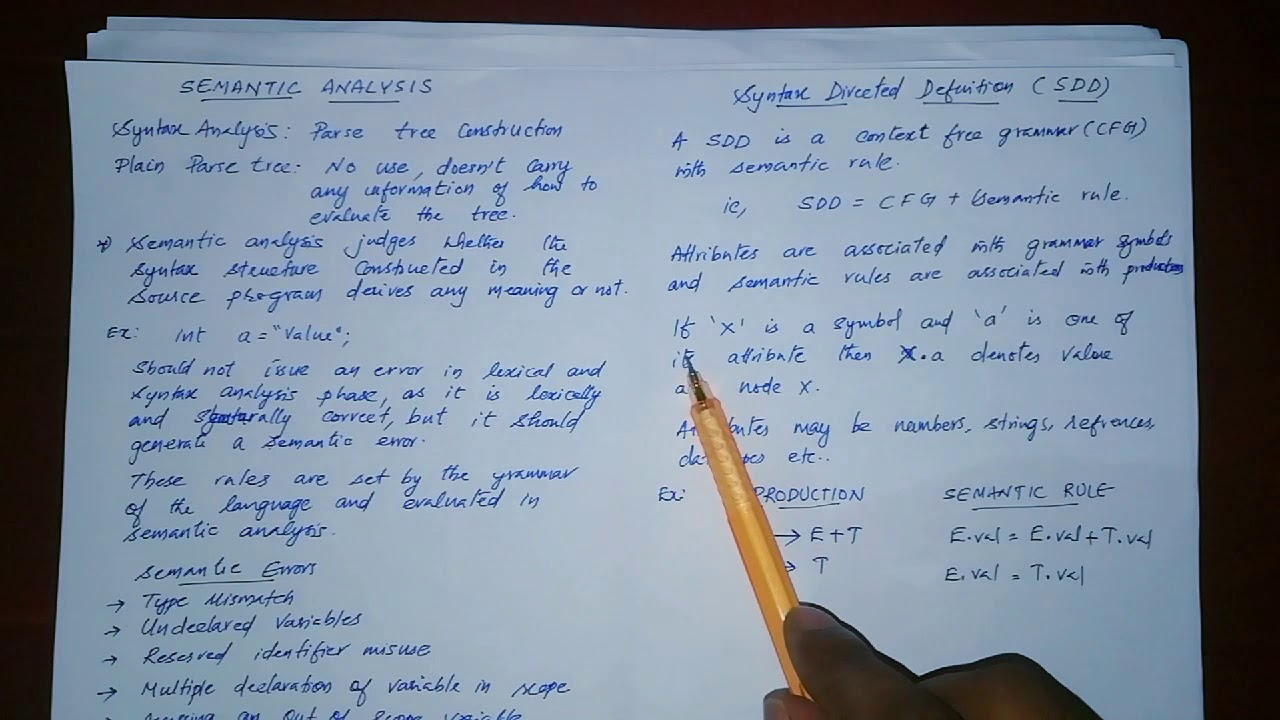 SEMANTIC ANALYSIS
Syntax Analysis: Parse tree Construction
Plain Parse tree: No use, doesn't carry
any information of how to
evaluate the tree.
*) Semantic analysis judges whether the
syntax structure constructed in the
source program derives any meaning or not.
Ex: int a = "value";
Should not issue an error in lexical and
syntax analysis phase, as it is lexically
and correct, but it should
generate a semantic error.
These rules are set by the grammar
of the language and evaluated in
semantic analysis.
Semantic Errors
→ Type Mismatch
→ Undeclared variables
→ Reserved identifier misuse
→ Multiple declaration of variable in scope
an out of scope variable
Syntax Directed Definition (SDD)
A SDD is a context free grammar (CFG)
with semantic rule.
ie, SDD = CFG + Semantic rule.
Attributes are associated with grammar symbols
and semantic rules are associated with productions
If 'X' is a symbol and 'a' is one of
its attribute then X.a denotes value
a node X.
Attributes may be numbers, strings, refrences,
etc..
Ex: PRODUCTION SEMANTIC RULE
→ E+T E.val = E.val + T.val
→ T E.val = T.val